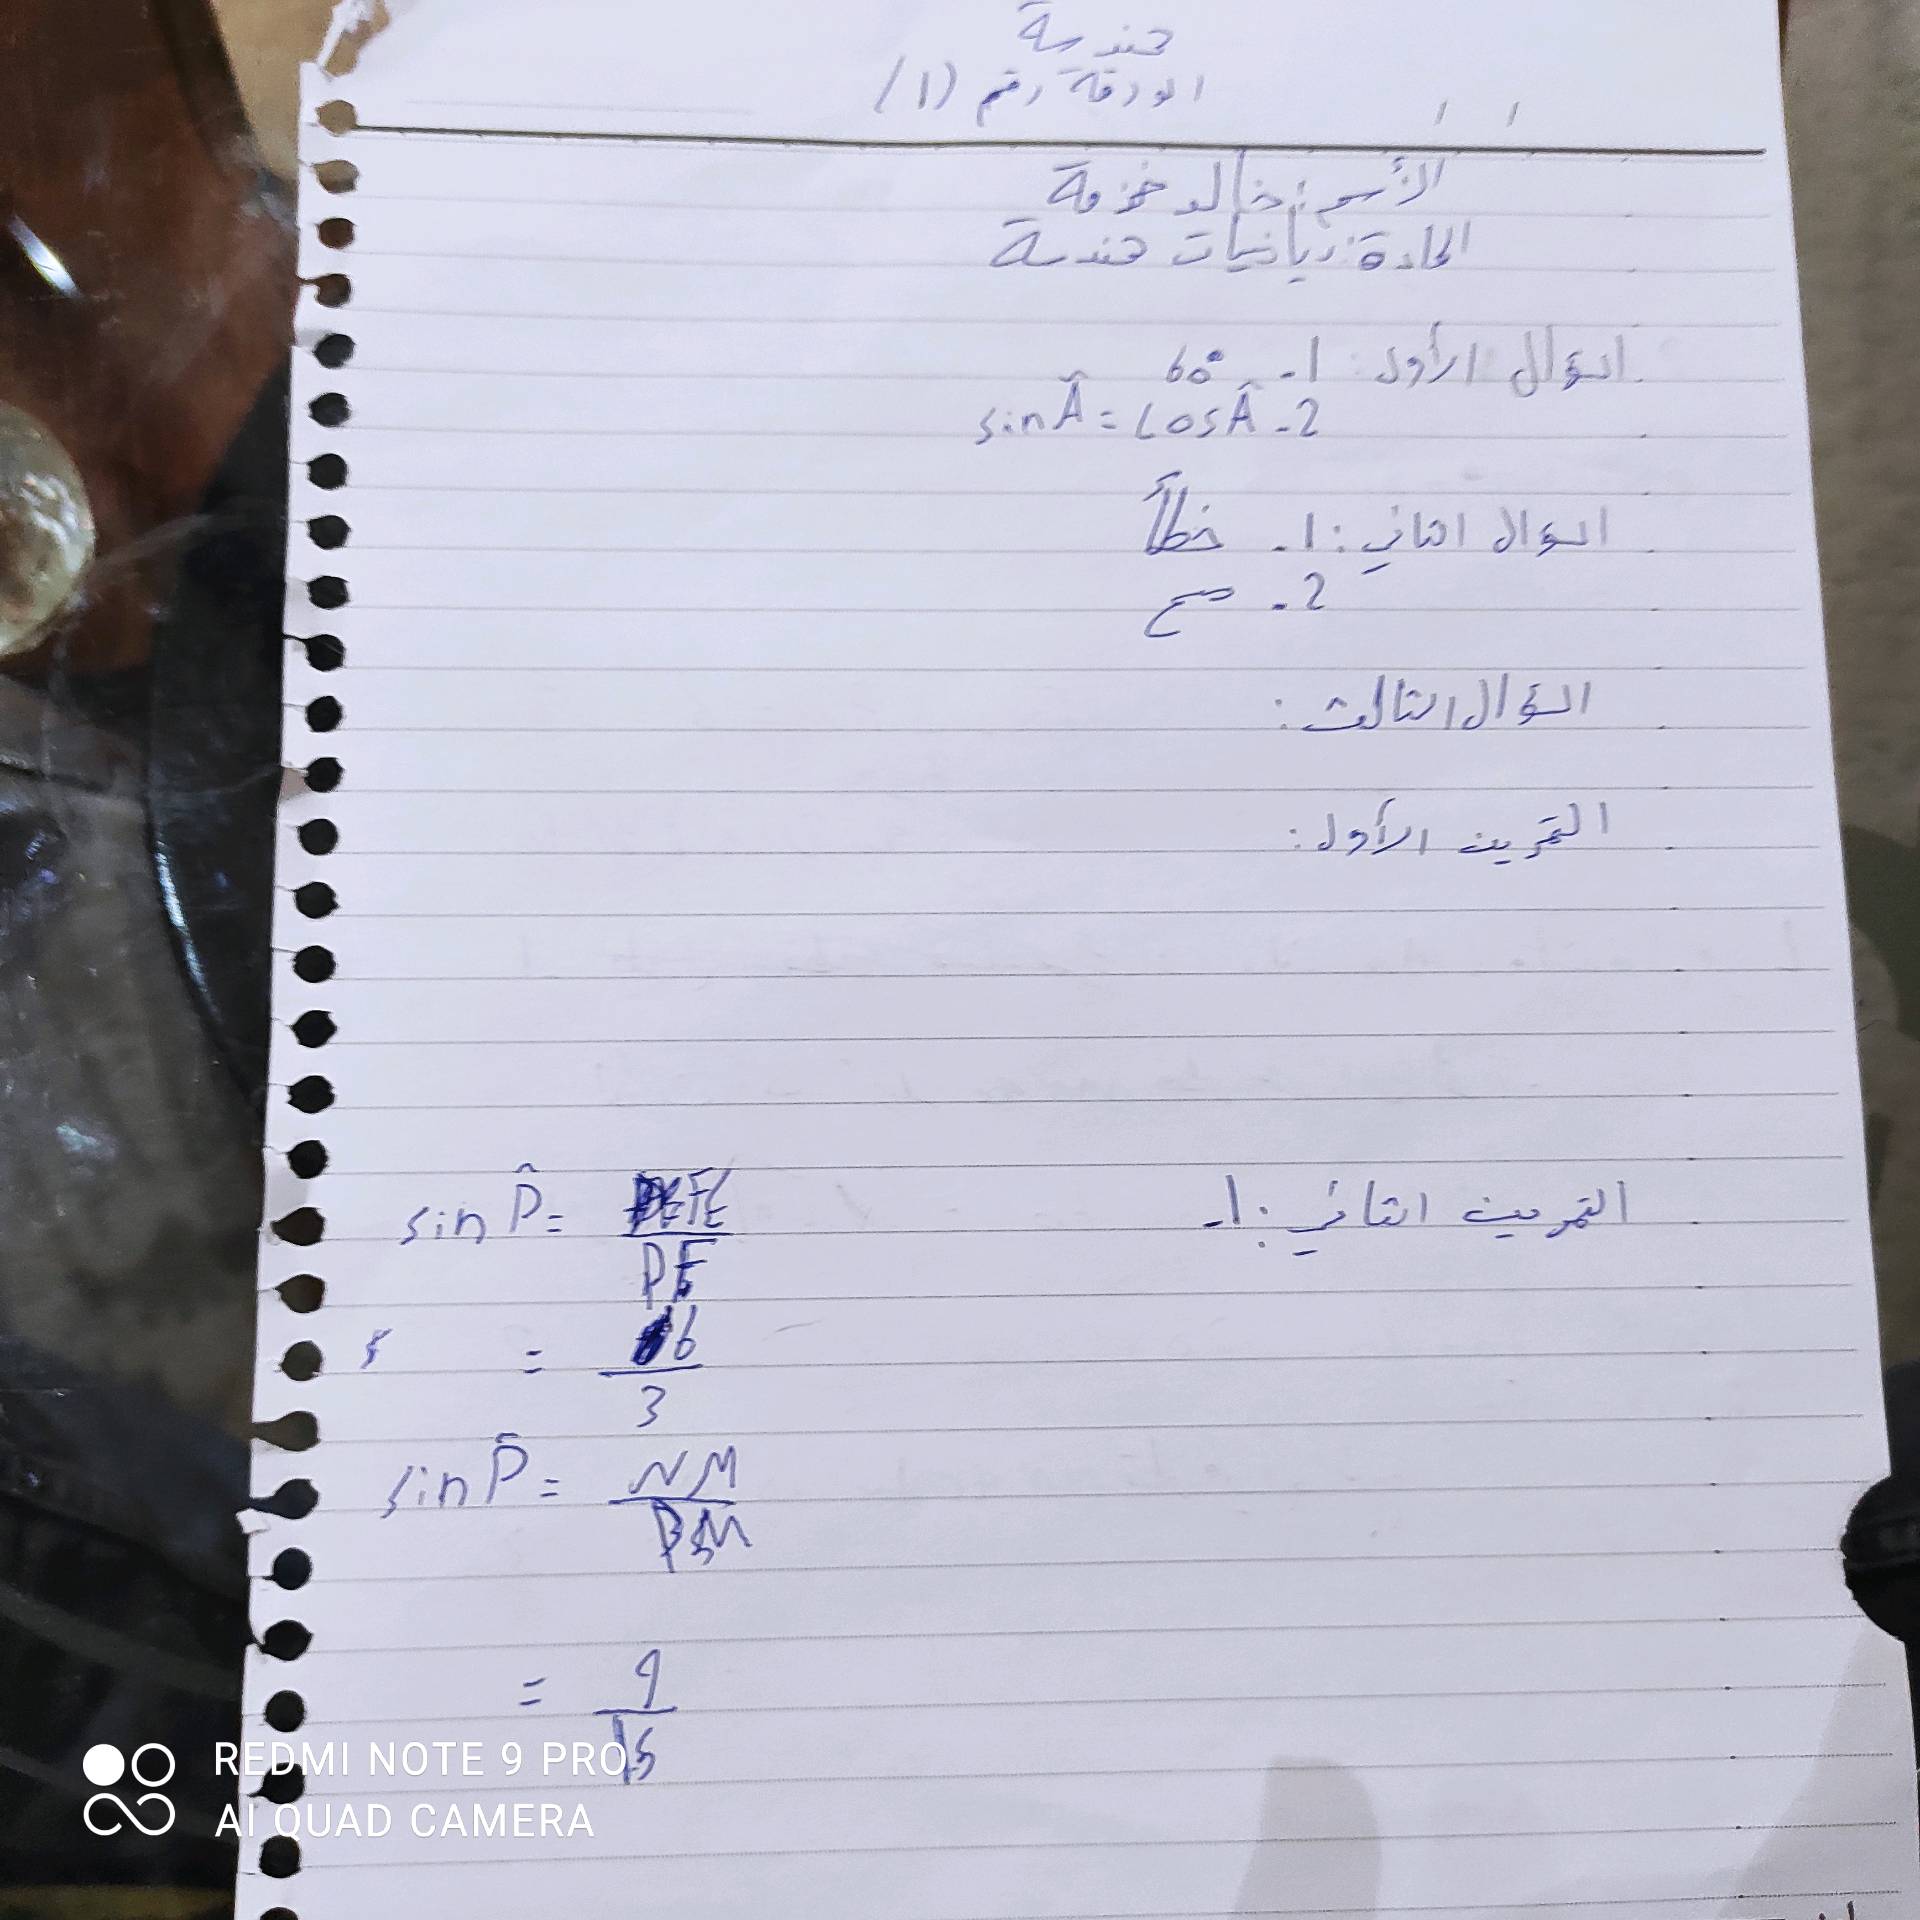 هندسة
الورقة رقم (1)
الأسم: خالد خزمة
المادة: رياضيات هندسة
السؤال الأول: 1- 60°
2- sin Â = cos Â
السؤال الثاني: 1- خطأ
2- صح
السؤال الثالث:
التمرين الأول:
التمرين الثاني: 1-
sin P̂ = FE / PE
= 6 / 3
sin P̂ = NM / PM
= 9 / 15
REDMI NOTE 9 PRO
AI QUAD CAMERA